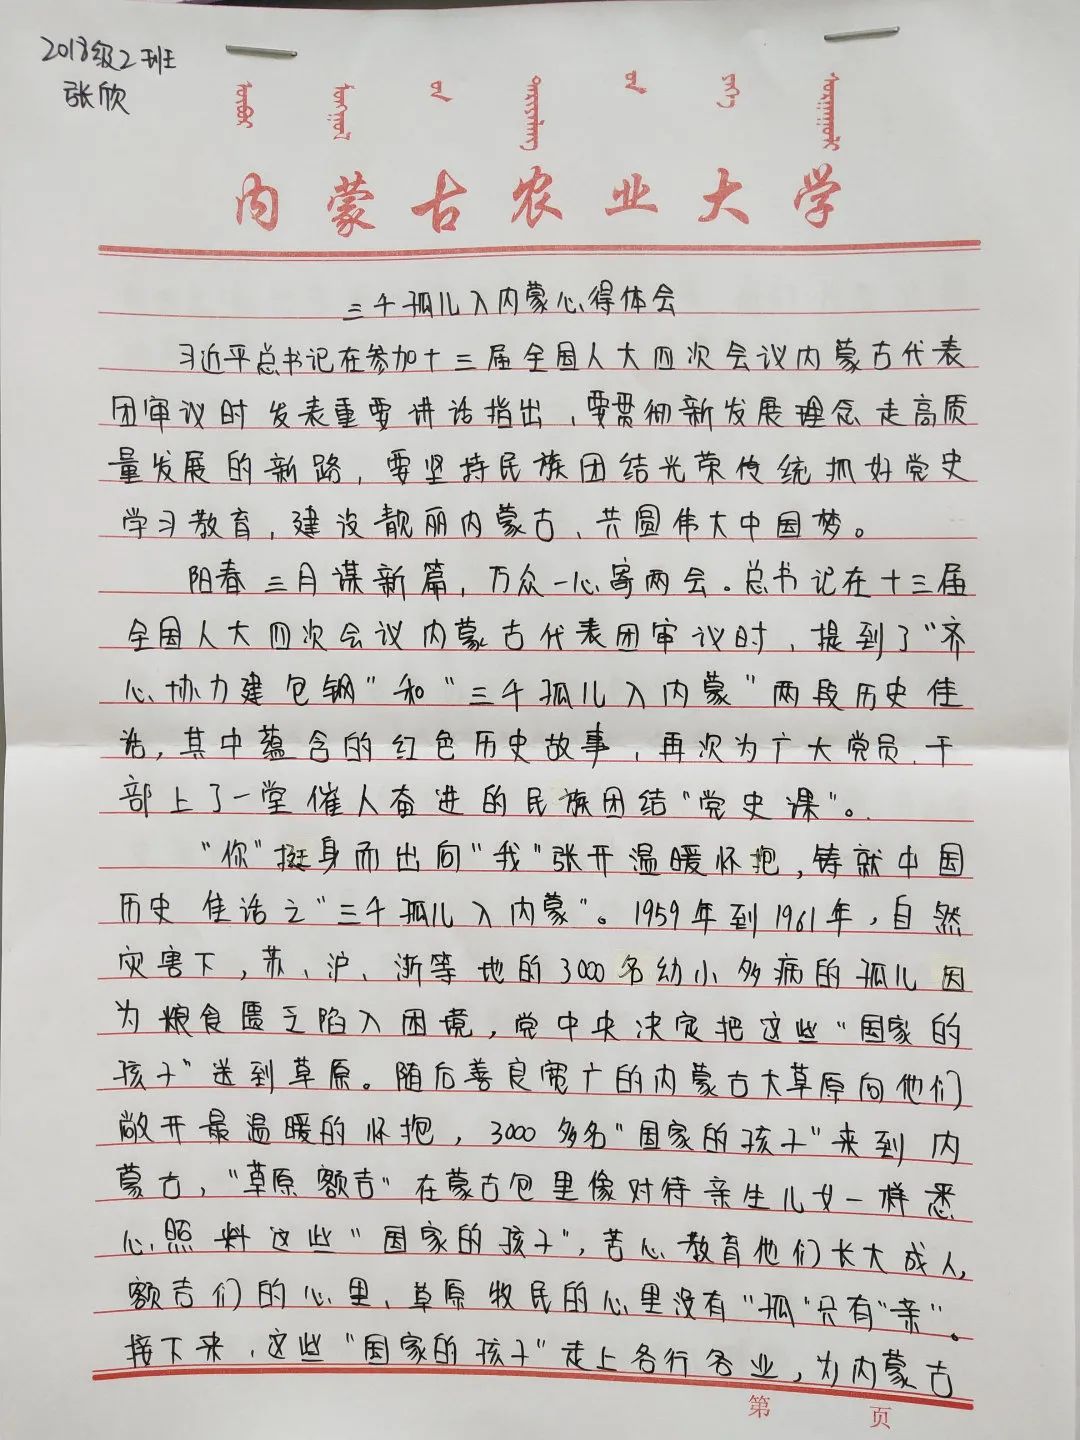 2018级2班
张欣
内蒙古农业大学
三千孤儿入内蒙心得体会
习近平总书记在参加十三届全国人大四次会议内蒙古代表
团审议时发表重要讲话指出，要贯彻新发展理念走高质
量发展的新路，要坚持民族团结光荣传统抓好党史
学习教育，建设靓丽内蒙古、共圆伟大中国梦。
阳春三月谋新篇，万众一心寄两会。总书记在十三届
全国人大四次会议内蒙古代表团审议时，提到了“齐
心协力建包钢”和“三千孤儿入内蒙”两段历史佳
话，其中蕴含的红色历史故事，再次为广大党员、干
部上了一堂催人奋进的民族团结“党史课”。
“你”挺身而出向“我”张开温暖怀抱，铸就中国
历史佳话之“三千孤儿入内蒙”。1959年到1961年，自然
灾害下，苏、沪、浙等地的3000名幼小多病的孤儿因
为粮食匮乏陷入困境，党中央决定把这些“国家的
孩子”送到草原。随后善良宽广的内蒙古大草原向他们
敞开最温暖的怀抱，3000多名“国家的孩子”来到内
蒙古，“草原额吉”在蒙古包里像对待亲生儿女一样悉
心照料这些“国家的孩子”，苦心教育他们长大成人，
额吉们的心里、草原牧民的心里没有“孤”只有“亲”。
接下来，这些“国家的孩子”走上各行各业，为内蒙古
第 页